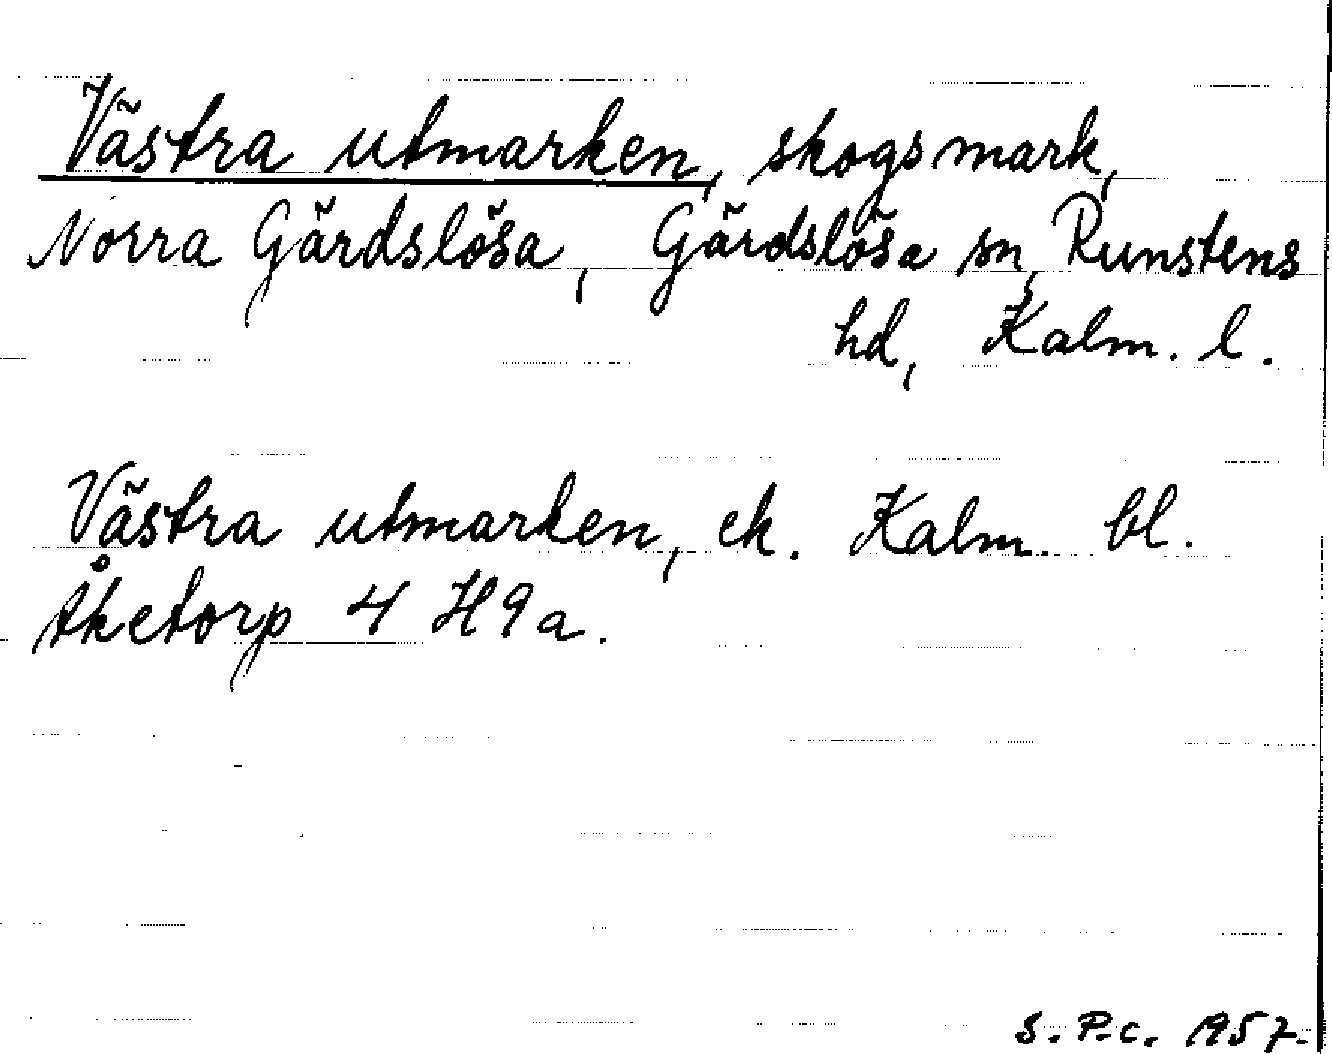 Västra utmarken, skogsmark,
Norra Gärdslösa, Gärdslösa sn, Runstens
hd, Kalm. l.
Västra utmarken, ek. Kalm. bl.
Åketorp 4 H 9 a.
S. P-c. 1957.